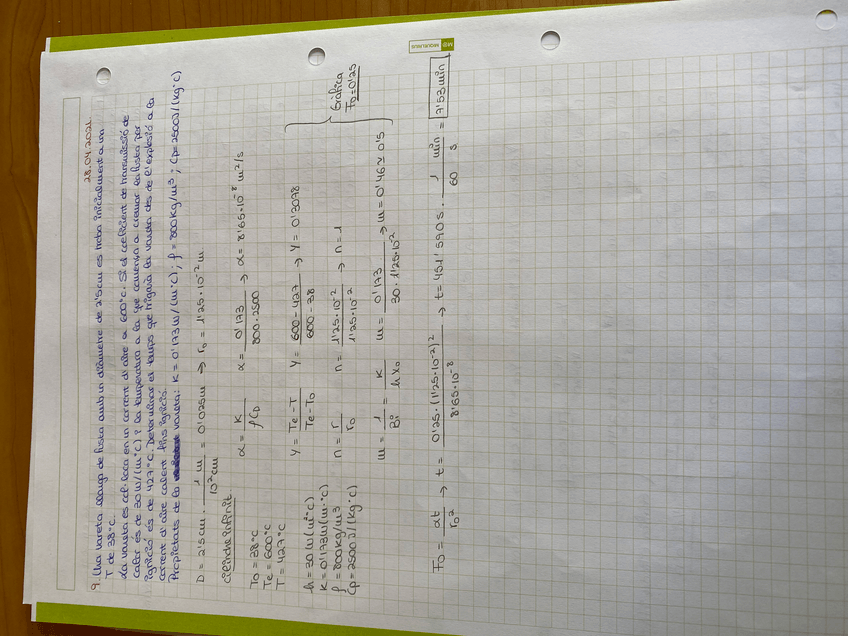 28.04.2021
9. Una vareta llarga de fusta amb un diàmetre de 2'5cm es troba inicialment a una
T de 38°C.
La vareta es col·loca en un corrent d'aire a 600°C. Si el coeficient de transmissió de
calor és de 30 W/(m²°C) i la temperatura a la que comença a cremar la fusta per
ignició és de 427°C. Determinar el temps que trigarà la vareta des de l'explosió a la
corrent d'aire calent fins ignició.
Propietats de la vareta: K = 0'173 W/(m·°C); ρ = 800 Kg/m³; Cp = 2500 J/(kg·°C)
D = 2'5cm · 1 m / 10² cm = 0'025m ⇒ r₀ = 1'25·10⁻² m
cilindre infinit
T₀ = 38°C
Te = 600°C
T = 427°C
h = 30 W/(m²°C)
K = 0'173 W/(m·°C)
ρ = 800 Kg/m³
Cp = 2500 J/(kg·°C)
α = K / ρCp
α = 0'173 / 800·2500 → α = 8'65·10⁻⁸ m²/s
Y = Te - T / Te - T₀
Y = 600 - 427 / 600 - 38 → Y = 0'3078
n = r / r₀
n = 1'25·10⁻² / 1'25·10⁻² → n = 1
m = 1 / Bi = K / h x₀
m = 0'173 / 30·1'25·10⁻² → m = 0'46 ≈ 0'5
Gràfica
F₀ = 0'25
F₀ = αt / r₀² → t = 0'25·(1'25·10⁻²)² / 8'65·10⁻⁸ → t = 451'590 s · 1 min / 60 s = 7'53 min
MIQUELRIUS